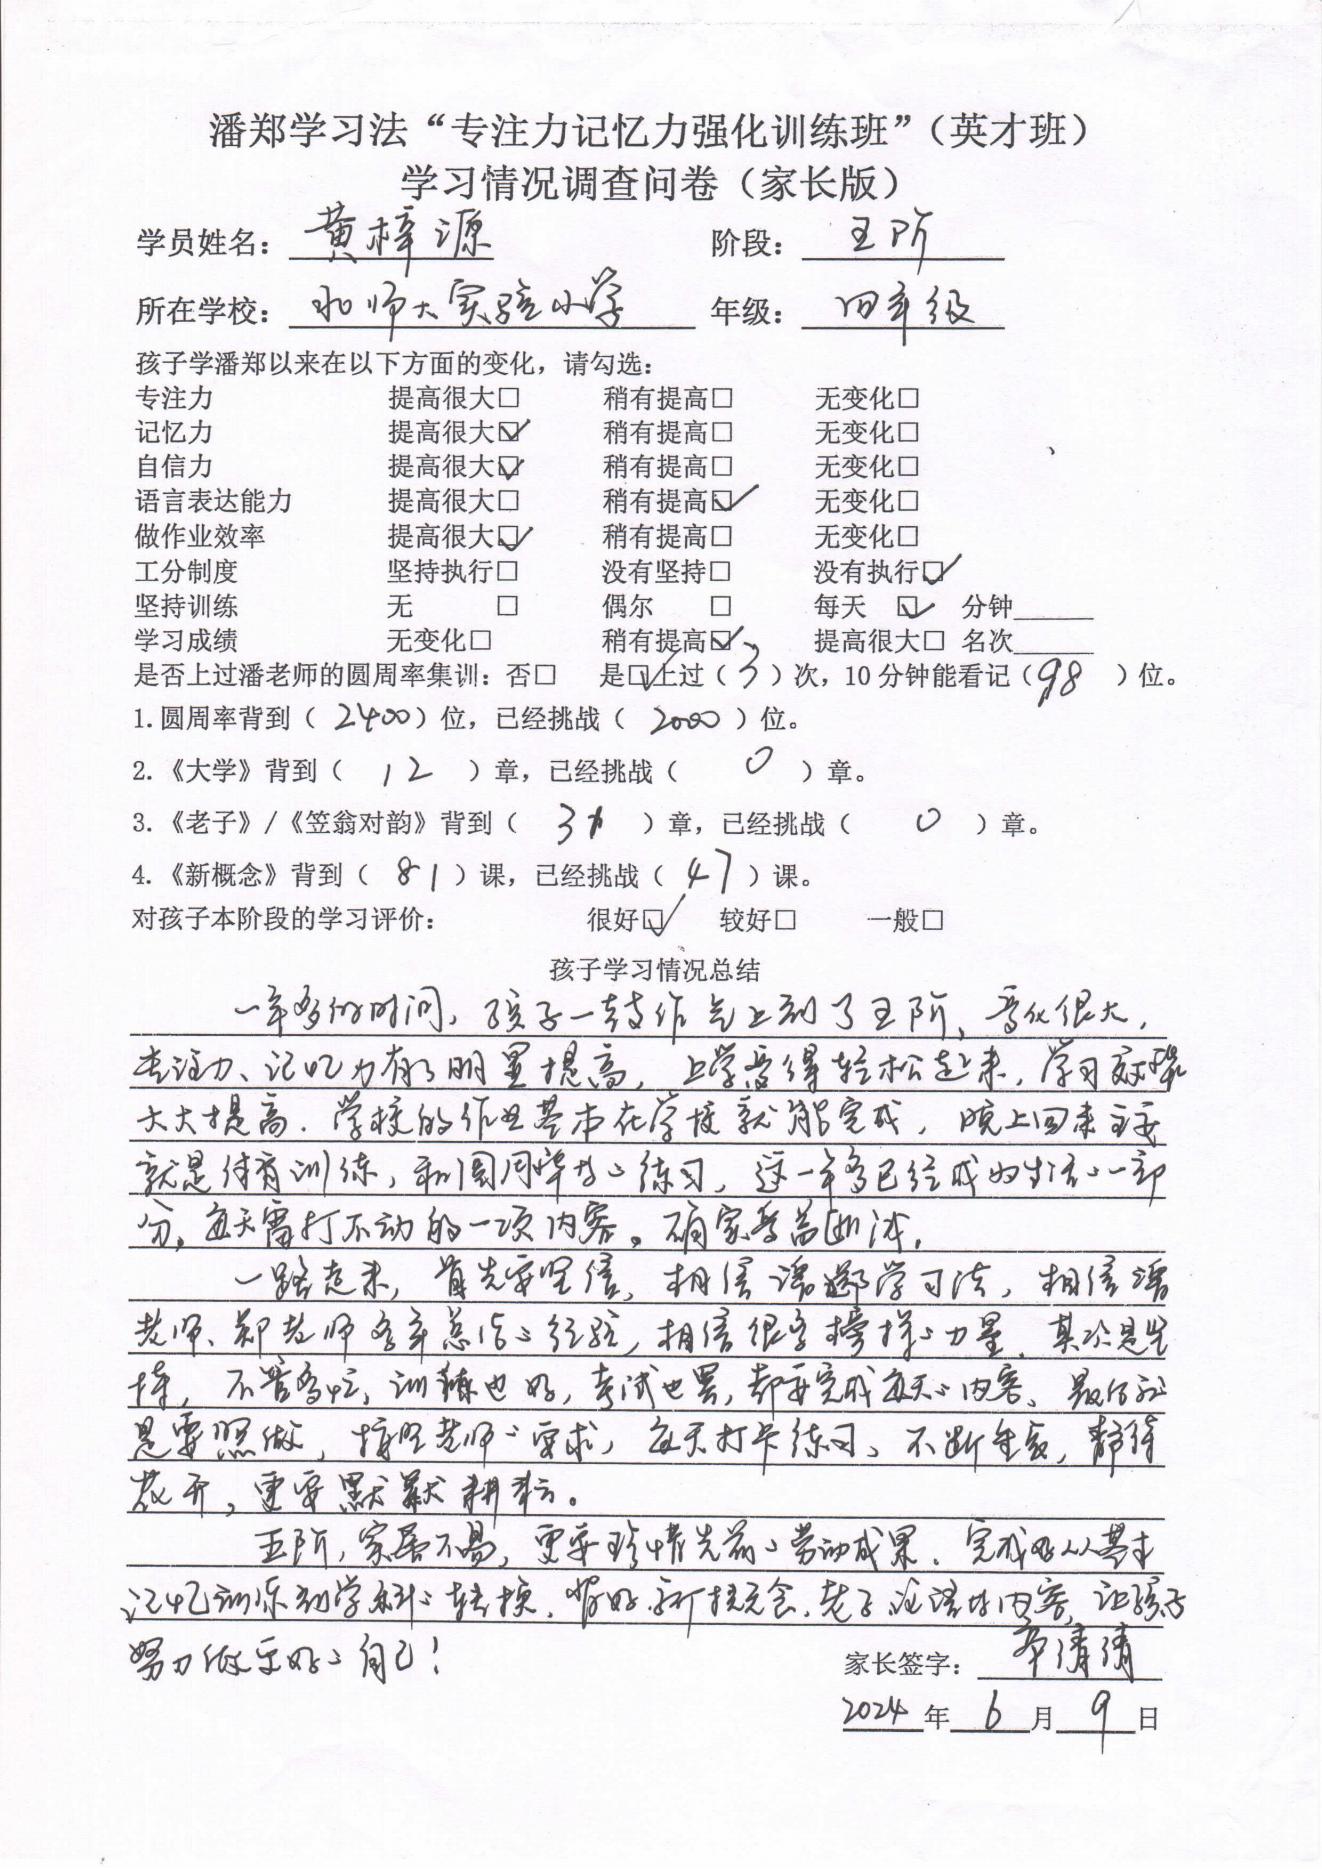 潘郑学习法“专注力记忆力强化训练班”（英才班）
学习情况调查问卷（家长版）
学员姓名： 黄梓源 阶段： 五阶
所在学校： 北师大实验小学 年级： 四年级
孩子学潘郑以来在以下方面的变化，请勾选：
专注力 提高很大□ 稍有提高□ 无变化□
记忆力 提高很大☑ 稍有提高□ 无变化□
自信力 提高很大☑ 稍有提高□ 无变化□
语言表达能力 提高很大□ 稍有提高☑ 无变化□
做作业效率 提高很大☑ 稍有提高□ 无变化□
工分制度 坚持执行□ 没有坚持□ 没有执行☑
坚持训练 无 □ 偶尔 □ 每天 ☑ 分钟______
学习成绩 无变化□ 稍有提高☑ 提高很大□ 名次______
是否上过潘老师的圆周率集训：否□ 是☑上过（3）次，10分钟能看记（98）位。
1.圆周率背到（2400）位，已经挑战（2000）位。
2.《大学》背到（12）章，已经挑战（0）章。
3.《老子》/《笠翁对韵》背到（ ）章，已经挑战（0）章。
4.《新概念》背到（81）课，已经挑战（47）课。
对孩子本阶段的学习评价： 很好☑ 较好□ 一般□
孩子学习情况总结
一年多的时间，孩子一鼓作气上到了五阶，变化很大，
专注力、记忆力有了明显提高，上学变得轻松起来，学习效率
大大提高．学校的作业基本在学校就能完成，晚上回来主要
就是体育训练，和圆周率等的练习，这一年多已经成为生活的一部
分，每天雷打不动的一项内容。
一路走来，首先要坚信，相信潘郑学习法，相信潘
老师、郑老师多年总结的经验，相信很多榜样的力量．其次是坚
持，不管多忙，训练也好，考试也罢，都要完成每天的内容、最后就
是要照做，按照老师的要求，每天打卡练习、不断生长，静待
花开，更要默默耕耘。
五阶，家居不易，更要珍惜先前的劳动成果．完成好从基本
记忆训练到学科的转换．背好新概念、老子、论语等内容，让孩子
努力做更好的自己！ 家长签字： 倩倩
2024年6月9日